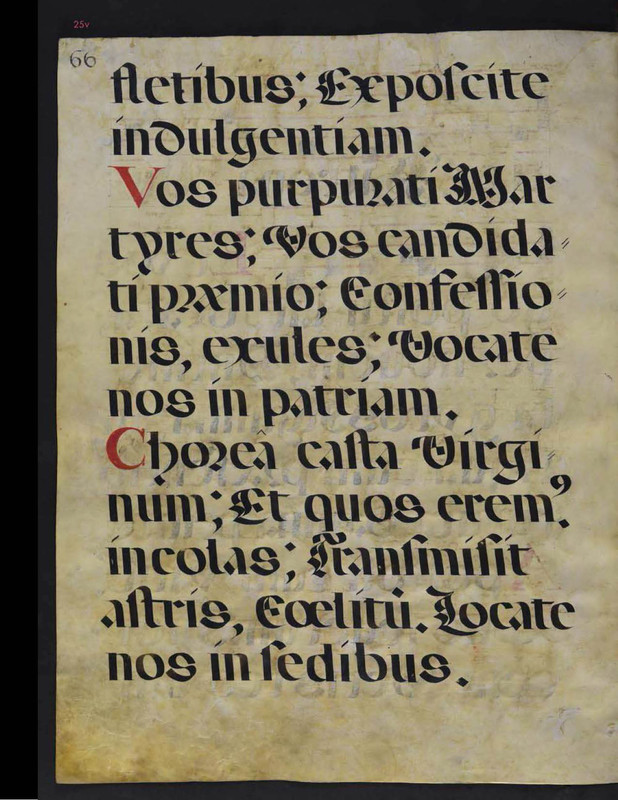 25v
66
fletibus; Expoſcite
indulgentiam.
Vos purpurati Mar
tyres; Vos candida⸗
ti præmio; Confeſſio⸗
nis, exules; Vocate
nos in patriam.
Choreâ caſta Virgi⸗
num; Et quos erem⁹.
incolas; Tranſmiſit
aſtris, Cœlitū. Locate
nos in ſedibus.